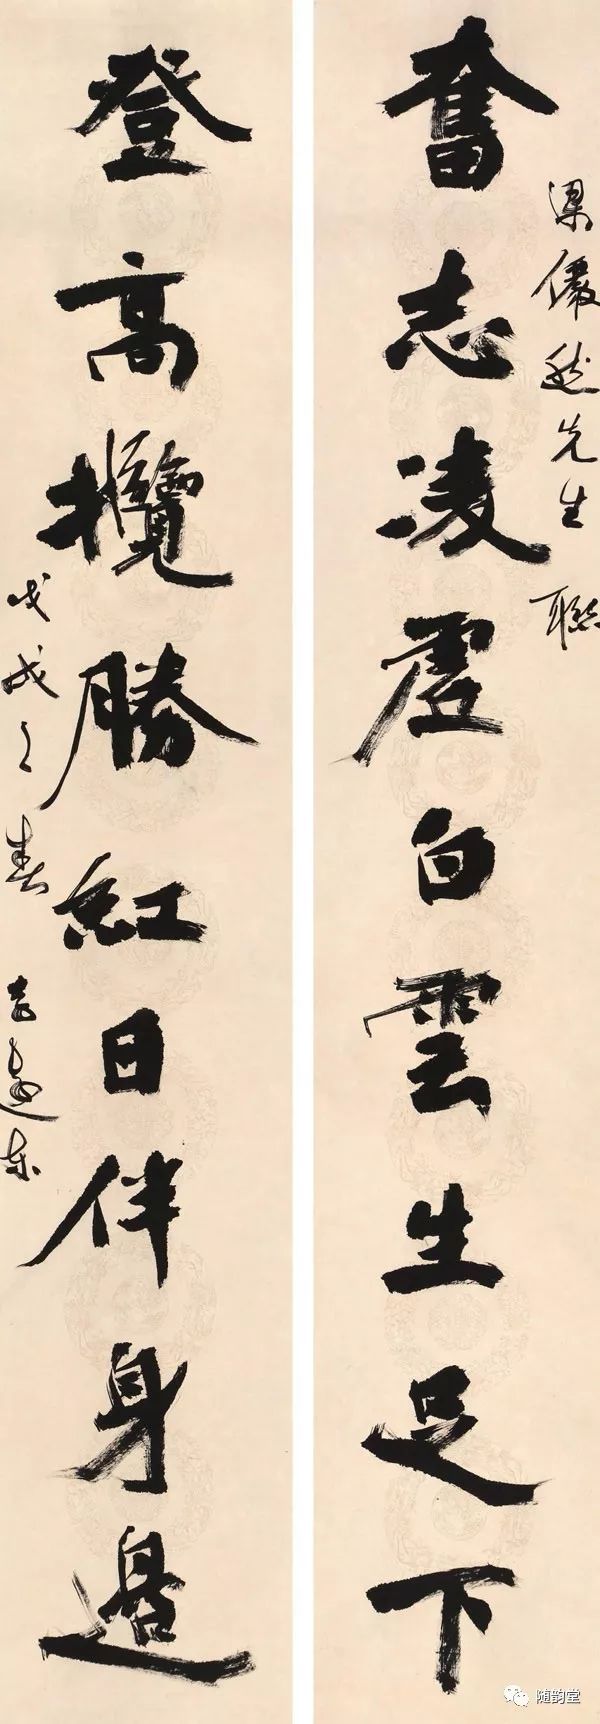 梁儼然先生 聯
奮志凌虛白雲生足下
登高攬勝紅日伴身邊
戊戌之春 遠東
随韵堂